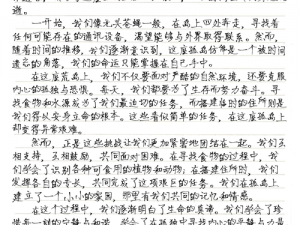 避。
一开始，我们像无头苍蝇一般，在岛上四处奔走，寻找着
任何可能存在的通讯设备，渴望能够与外界取得联系。然而，
随着时间的推移，我们逐渐意识到，这座孤岛似乎是一个被时间
遗忘的角落，我们的命运只能掌握在自己手中。
在这座荒岛上，我们不仅要面对严酷的自然环境，还要克服
内心的孤独与恐惧。每天，我们都要为了生存而努力奋斗。寻
找食物和水源成了我们最迫切的任务，而搭建临时的住所则是
我们得以安身立命的根本。这些看似简单的任务，在这座孤岛上
却变得异常艰难。
然而，正是这些挑战让我们更加紧密地团结在一起。我们互
相支持，互相鼓励，共同面对困难。在寻找食物的过程中，我
们学会了识别各种可食用的植物和动物。在搭建住所时，我们
发挥各自的专长，共同完成了这项艰巨的任务。我们在孤岛上
建立了一个小小的家园，那里有我们共同的记忆和情感。
在这个过程中，我们逐渐明白了生命的真谛。我们学会了珍
惜每一刻的宁静与和谐，学会了在孤独中寻找内心的平静与力量